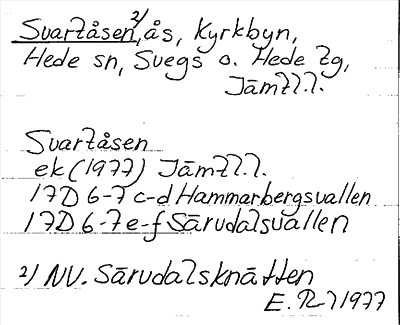 Svartåsen, 2) ås, Kyrkbyn,
Hede sn, Svegs o. Hede tg,
Jämtl.l.
Svartåsen
ek (1977) Jämtl.l.
17D 6-7 c-d Hammarbergsvallen
17D 6-7 e-f Särvdalsvallen
2) NV. Särvdalsknätten
1977